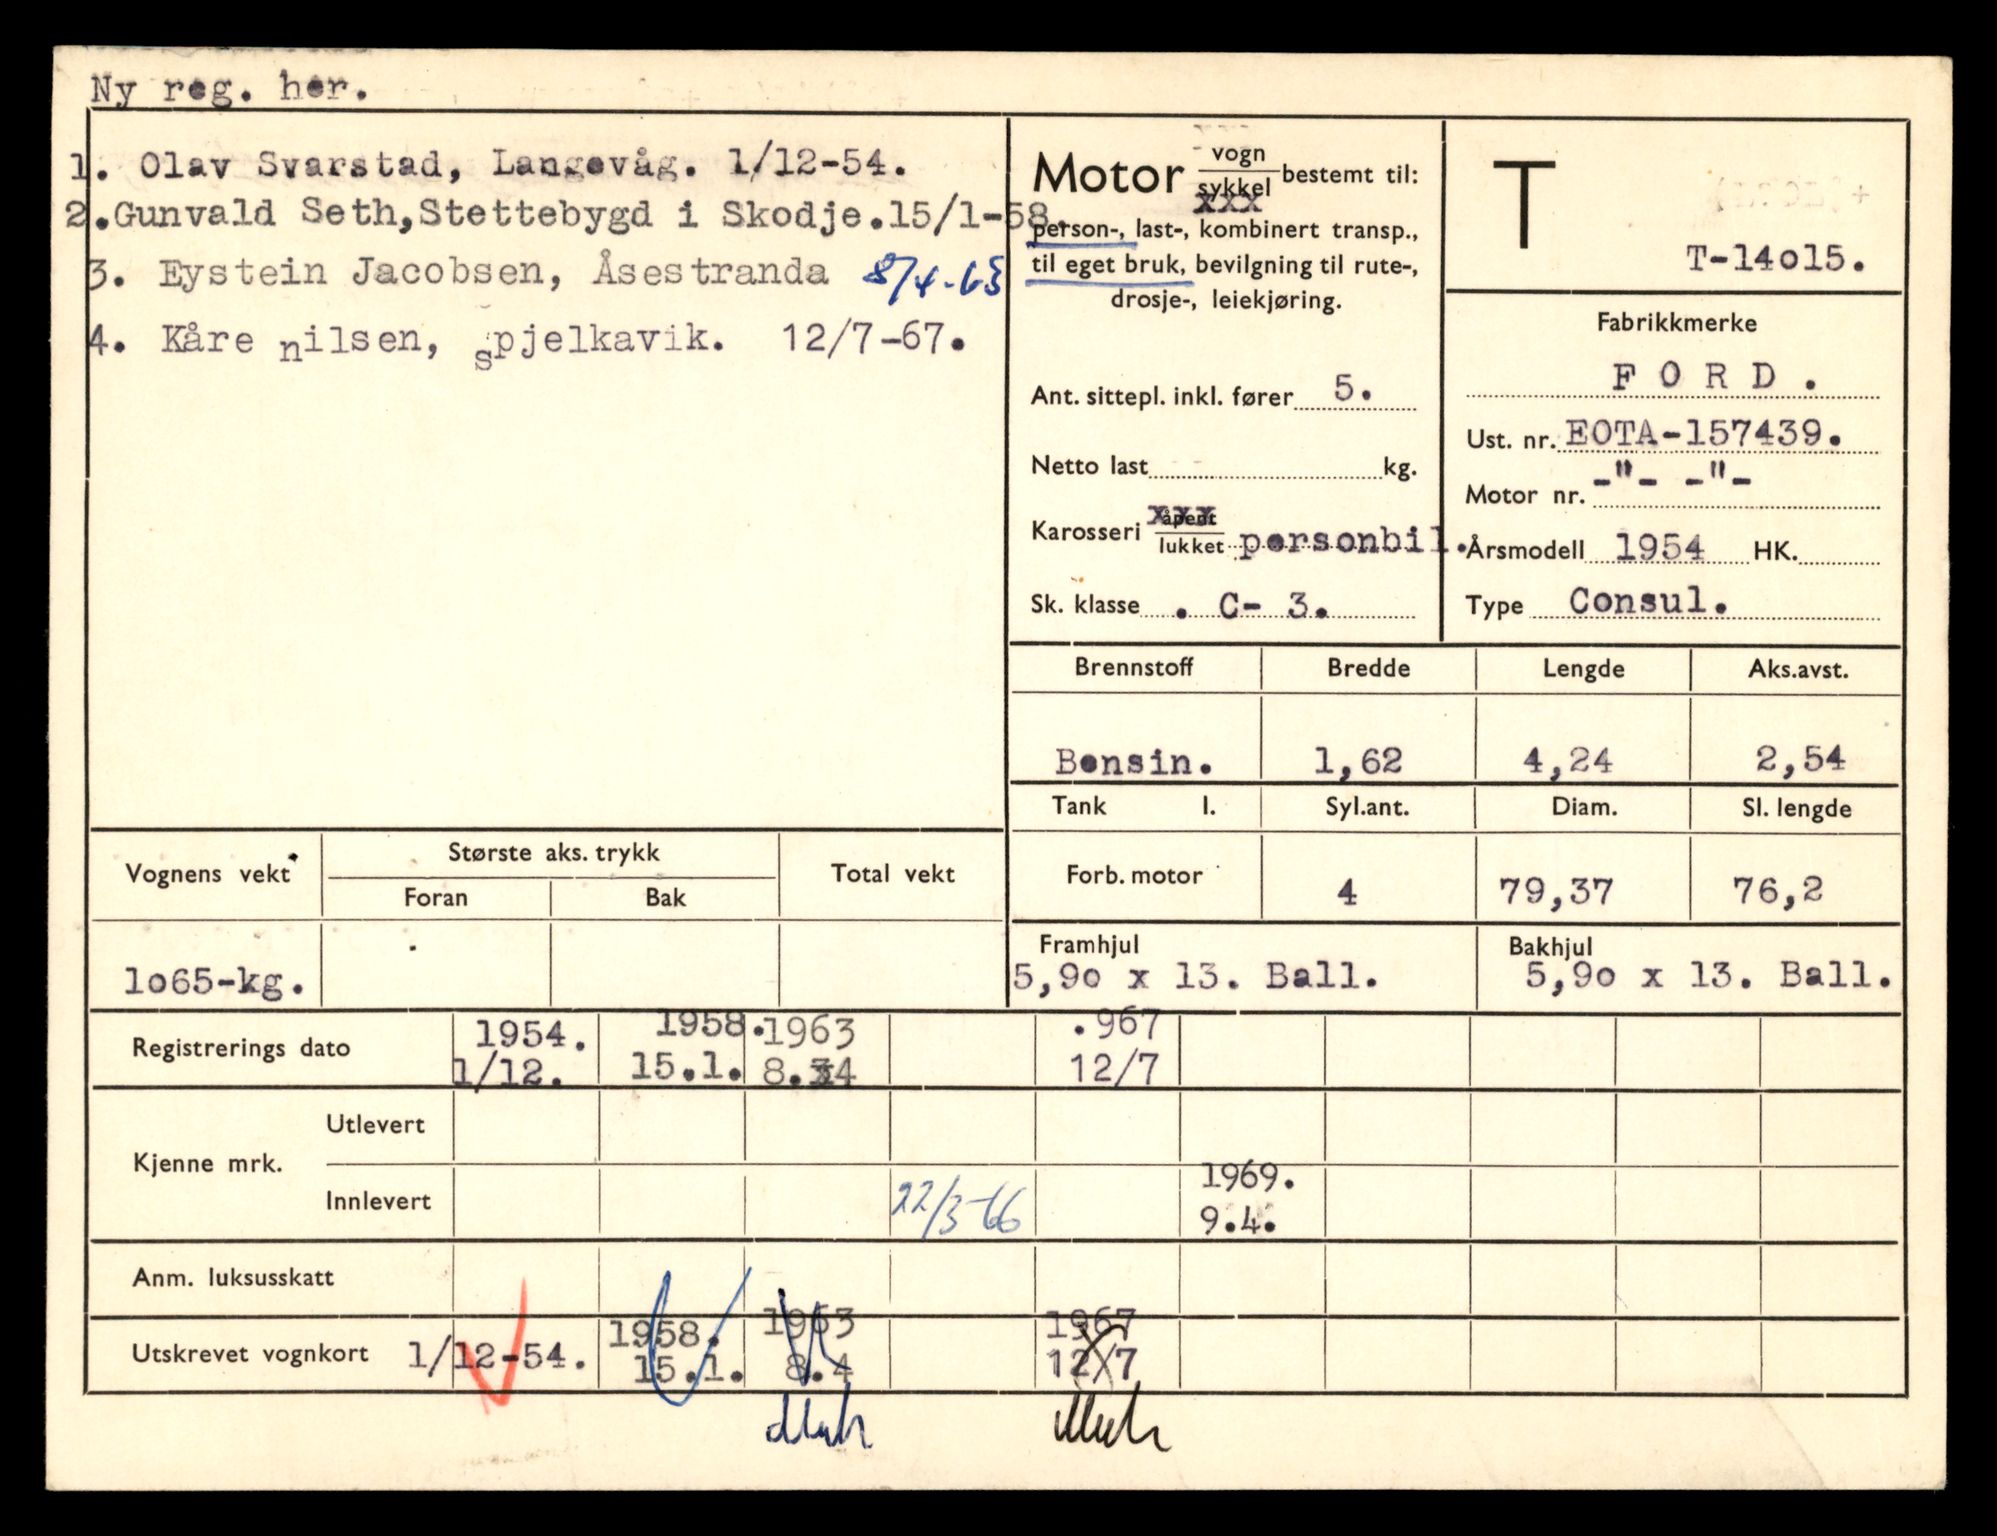 Ny reg. her.
1. Olav Svarstad, Langevåg. 1/12-54.
2.Gunvald Seth,Stettebygd i Skodje.15/1-58.
3. Eystein Jacobsen, Åsestranda 8/4-63
4. Kåre nilsen, spjelkavik. 12/7-67.
Motor vogn
sykkel
xxx
bestemt til:
person-, last-, kombinert transp.,
til eget bruk, bevilgning til rute-,
drosje-, leiekjøring.
Ant. sittepl. inkl. fører 5.
Netto last kg.
Karosseri åpent
xxx
lukket personbil.
Sk. klasse . C- 3.
T
T-14o15.
Fabrikkmerke
F O R D .
Ust. nr. EOTA-157439.
Motor nr. -"- -"-
Årsmodell 1954 HK.
Type Consul.
Brennstoff Bredde Lengde Aks.avst.
Bensin. 1,62 4,24 2,54
Tank l. Syl.ant. Diam. Sl. lengde
Forb. motor 4 79,37 76,2
Framhjul Bakhjul
5,9o x 13. Ball. 5,9o x 13. Ball.
Vognens vekt Største aks. trykk Total vekt
Foran Bak
1o65-kg.
Registrerings dato 1954. 1958. 1963 .967
1/12. 15.1. 8.4 12/7
Kjenne mrk. Utlevert
Innlevert 22/3-66 1969.
9.4.
Anm. luksusskatt
Utskrevet vognkort 1/12-54. 1958. 1963 1967
15.1. 8.4 12/7